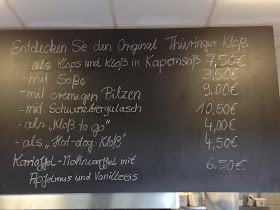 Entdecken Sie den Original Thüringer Kloß
- als Klops und Kloß in Kapernsoß 7,50€
- mit Soße 3,50€
- mit cremigen Pilzen 9,00€
- mit Schwarzbiergulasch 10,50€
- als „Kloß to go" 4,00€
- als „Hot-dog-Kloß" 4,50€
Kartoffel-Mohnwaffel mit 6.50€
Apfelmus und Vanilleeis